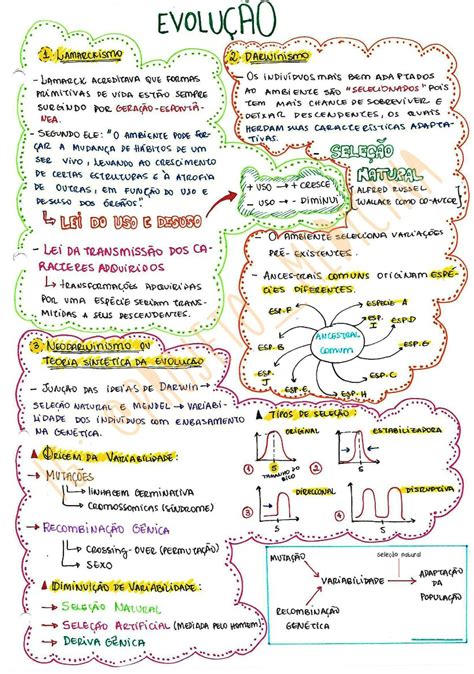 EVOLUÇÃO
1. LAMARCKISMO
- LAMARCK ACREDITAVA QUE FORMAS
PRIMITIVAS DE VIDA ESTÃO SEMPRE
SURGINDO POR GERAÇÃO-ESPONTÂ-
NEA.
- SEGUNDO ELE: "O AMBIENTE PODE FOR-
ÇAR A MUDANÇA DE HÁBITOS DE UM
SER VIVO, LEVANDO AO CRESCIMENTO
DE CERTAS ESTRUTURAS E À ATROFIA
DE OUTRAS, EM FUNÇÃO DO USO E
DESUSO DOS ÓRGÃOS."
LEI DO USO E DESUSO
+ USO → + CRESCE
- USO → - DIMINUI
- LEI DA TRANSMISSÃO DOS CA-
RACTERES ADQUIRIDOS
TRANSFORMAÇÕES ADQUIRIDAS
POR UMA ESPÉCIE SERIAM TRANS-
MITIDAS A SEUS DESCENDENTES.
2. DARWINISMO
- OS INDIVÍDUOS MAIS BEM ADAPTADOS
AO AMBIENTE SÃO "SELECIONADOS" POIS
TEM MAIS CHANCE DE SOBREVIVER E
DEIXAR DESCENDENTES, OS QUAIS
HERDAM SUAS CARACTERÍSTICAS ADAPTA-
TIVAS.
SELEÇÃO
NATURAL
(ALFRED RUSSEL
WALLACE COMO CO-AUTOR)
- O AMBIENTE SELECIONA VARIAÇÕES
PRÉ-EXISTENTES.
- ANCESTRAIS COMUNS ORIGINAM ESPÉ-
CIES DIFERENTES.
ANCESTRAL
COMUM
ESP. F
ESPÉCIE A
ESP. I
ESP. D
ESP. B
ESP. G
ESP. E
ESP. J
ESP. H
ESP. C
3. NEODARWINISMO OU
TEORIA SINTÉTICA DA EVOLUÇÃO
- JUNÇÃO DAS IDEIAS DE DARWIN →
SELEÇÃO NATURAL E MENDEL → VARIABI-
LIDADE DOS INDIVÍDUOS COM EMBASAMENTO
NA GENÉTICA.
ORIGEM DA VARIABILIDADE:
→ MUTAÇÕES
LINHAGEM GERMINATIVA
CROMOSSÔMICAS (SÍNDROME)
→ RECOMBINAÇÃO GÊNICA
CROSSING-OVER (PERMUTAÇÃO)
SEXO
DIMINUIÇÃO DE VARIABILIDADE:
→ SELEÇÃO NATURAL
→ SELEÇÃO ARTIFICIAL (MEDIADA PELO HOMEM)
→ DERIVA GÊNICA
TIPOS DE SELEÇÃO:
1 ORIGINAL
S
TAMANHO DO BICO
2 ESTABILIZADORA
S
3 DIRECIONAL
S
4 DISRUPTIVA
S
MUTAÇÃO
RECOMBINAÇÃO
GENÉTICA
VARIABILIDADE
seleção natural
ADAPTAÇÃO
DA
POPULAÇÃO